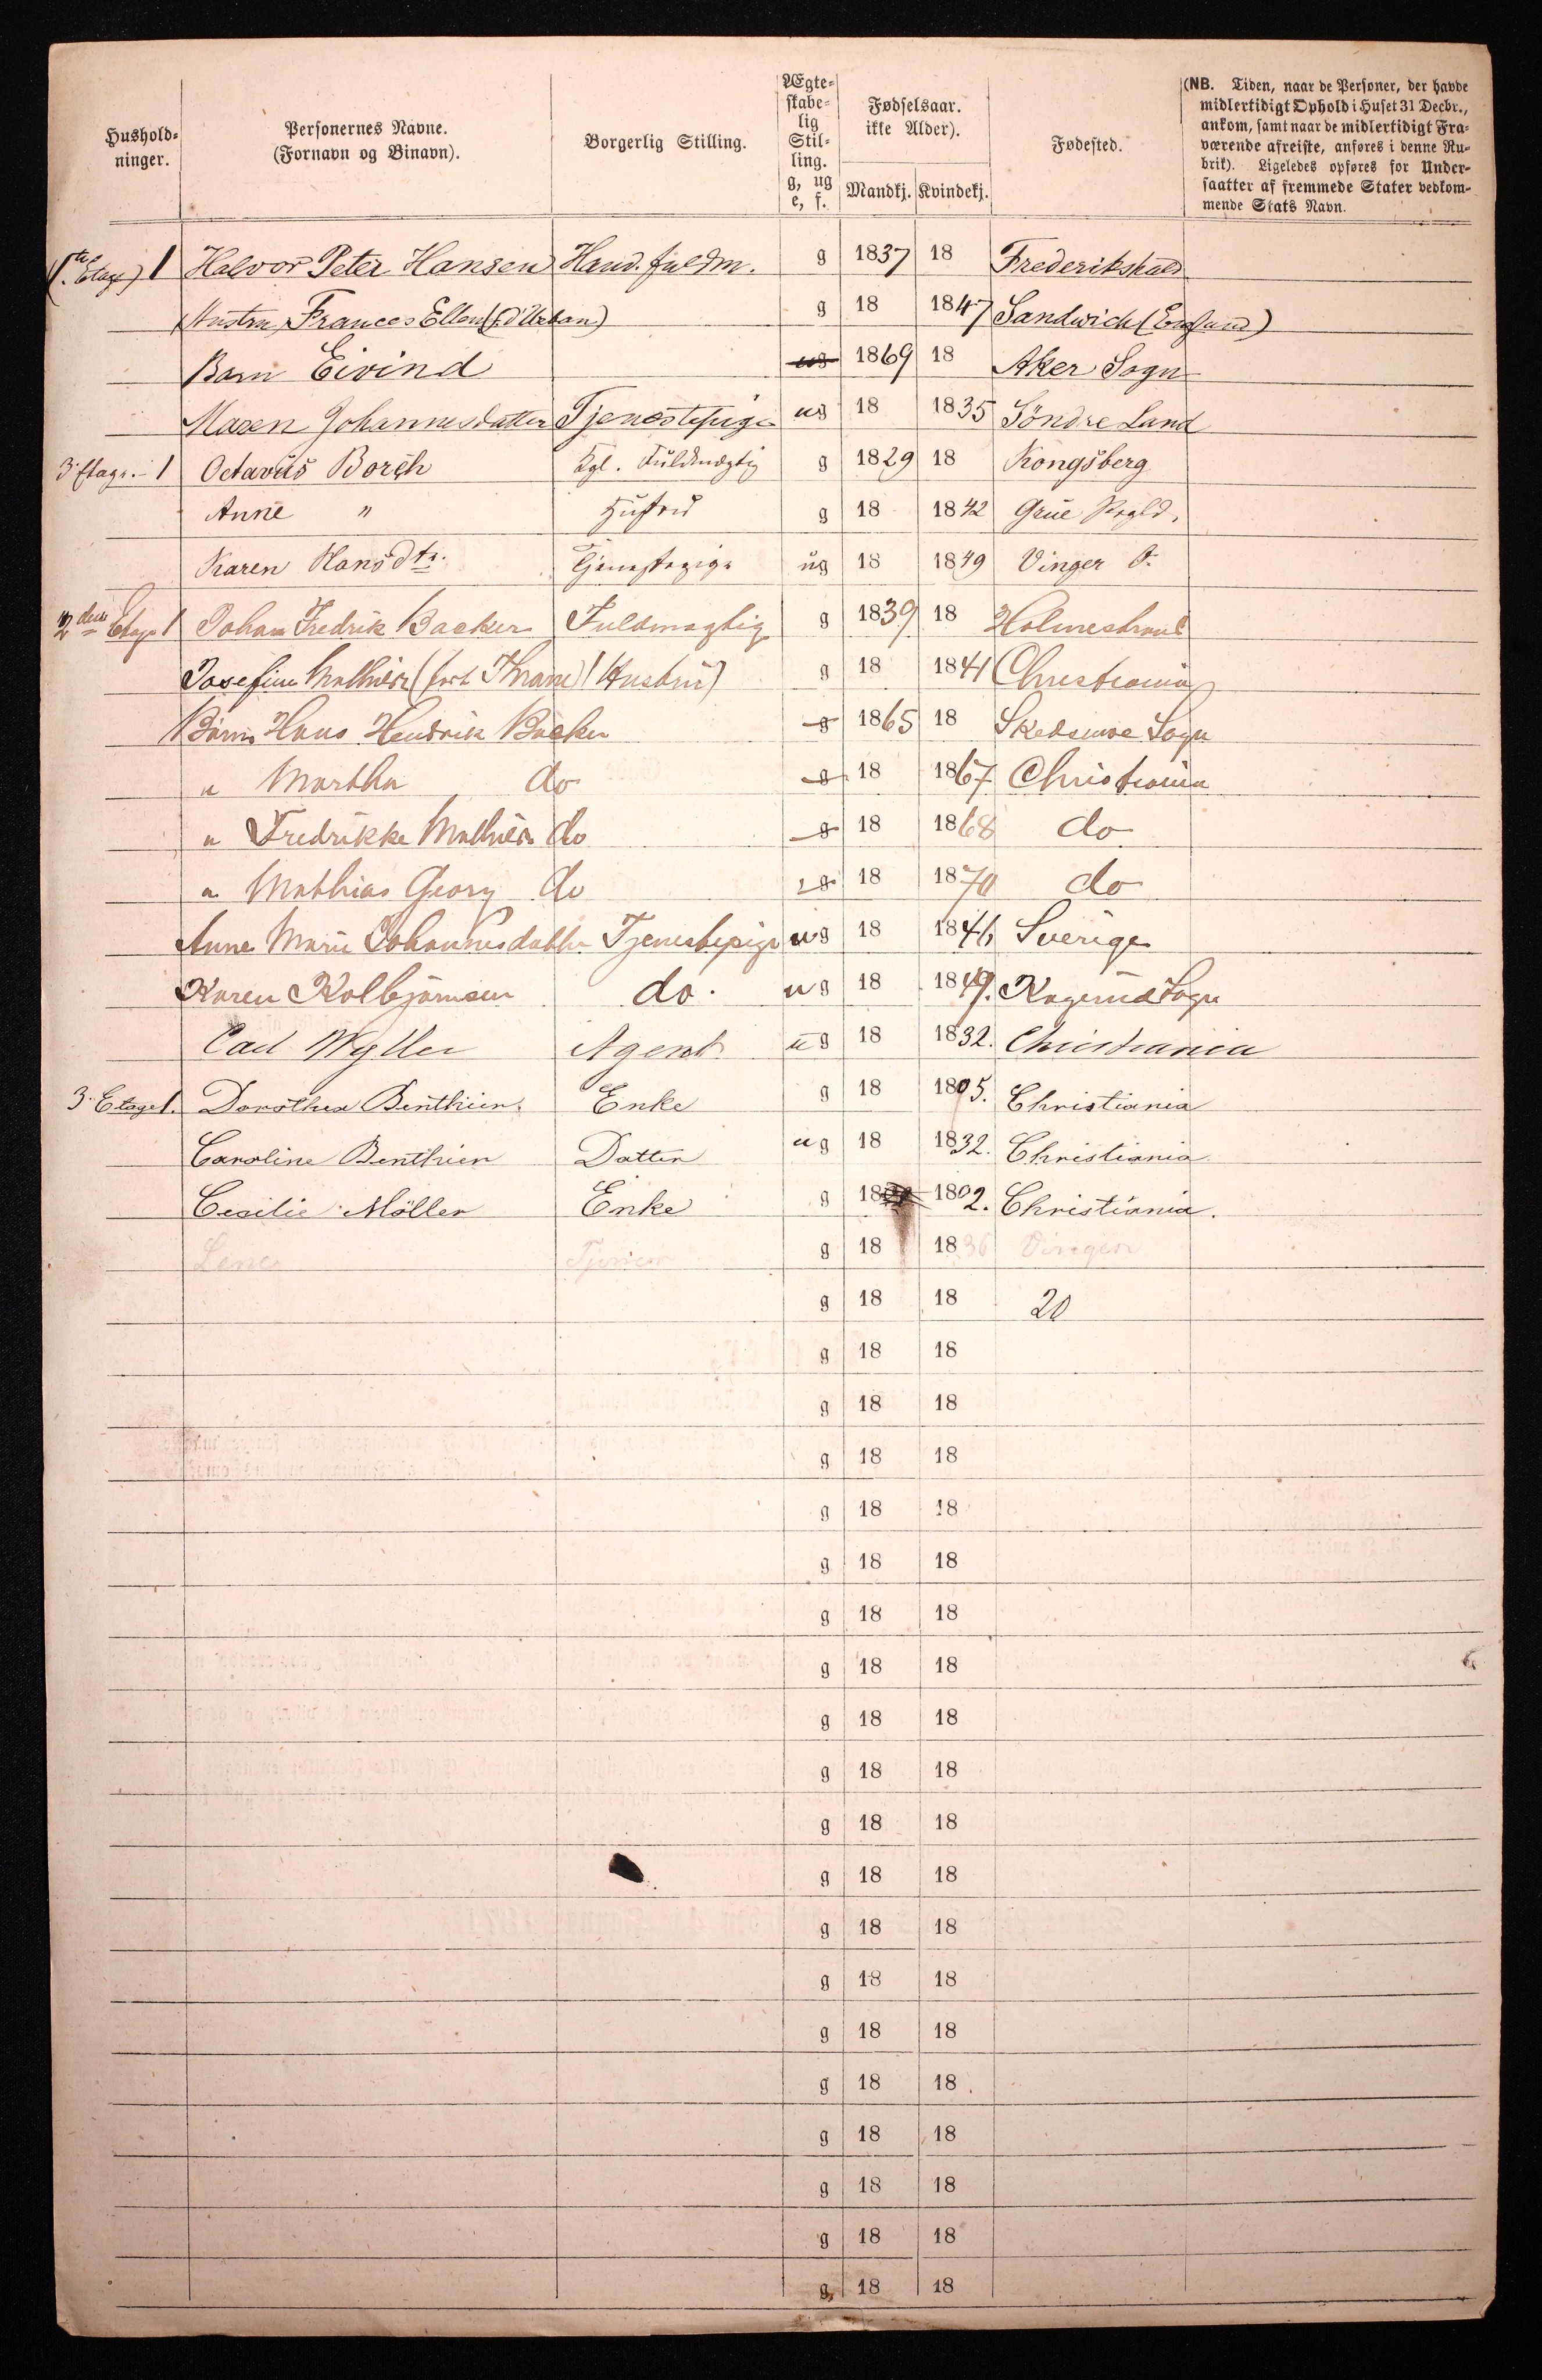 Hushold-
ninger.
Personernes Navne.
(Fornavn og Binavn).
Borgerlig Stilling.
Ægte-
skabe-
lig
Stil-
ling.
g, ug
e, f.
Fødselsaar.
ikke Alder).
Mandkj. Kvindekj.
Fødested.
(NB. Tiden, naar de Personer, der havde
midlertidigt Ophold i Huset 31 Decbr.,
ankom, samt naar de midlertidigt Fra-
værende afreiste, anføres i denne Ru-
brik). Ligeledes opføres for Under-
saatter af fremmede Stater vedkom-
mende Stats Navn.
(1ste Etage) 1 Halvor Peter Hansen Hand. fuldm. g 1837 18 Frederikshald
Hustru, Frances Ellen (f. d'Urban) g 18 1847 Sandwich (England)
Barn Eivind ug 1869 18 Aker Sogn
Maren Johannesdatter Tjenestepige ug 18 1835 Söndre Land
3 Etage. 1 Octavius Borch Kgl. Fuldmægtig g 1829 18 Kongsberg
Anne " Hustru g 18 1842 Grue Prgld.
Karen Hansdtr. Tjenestepige ug 18 1849 Vinger
2den Etage 1 Johan Fredrik Backer Fuldmægtig g 1839 18 Holmestrand
Josefine Mathiea (født Thrane) (Hustru) g 18 1841 Christiania
Börn Hans Hendrik Backer g 1865 18 Skedsmoe Sogn
" Martha do g 18 1867 Christiania
" Fredrikke Mathiea do g 18 1868 do
" Mathias Georg do g 18 1870 do
Anne Marie Johannesdatter Tjenestepige ug 18 1846 Sverige
Karen Kolbjørnsen do. ug 18 1849. Sogn
Carl Wyller Agent ug 18 1832. Christiania
3. Etage 1. Dorothea Benthien. Enke g 18 1805. Christiania
Caroline Benthien Datter ug 18 1832. Christiania
Cecilie Möller Enke g 18 1802. Christiania.
Lene Tjener g 18 1836 Vinger
g 18 18 20
g 18 18
g 18 18
g 18 18
g 18 18
g 18 18
g 18 18
g 18 18
g 18 18
g 18 18
g 18 18
g 18 18
g 18 18
g 18 18
g 18 18
g 18 18
g 18 18
g 18 18
g 18 18
g 18 18